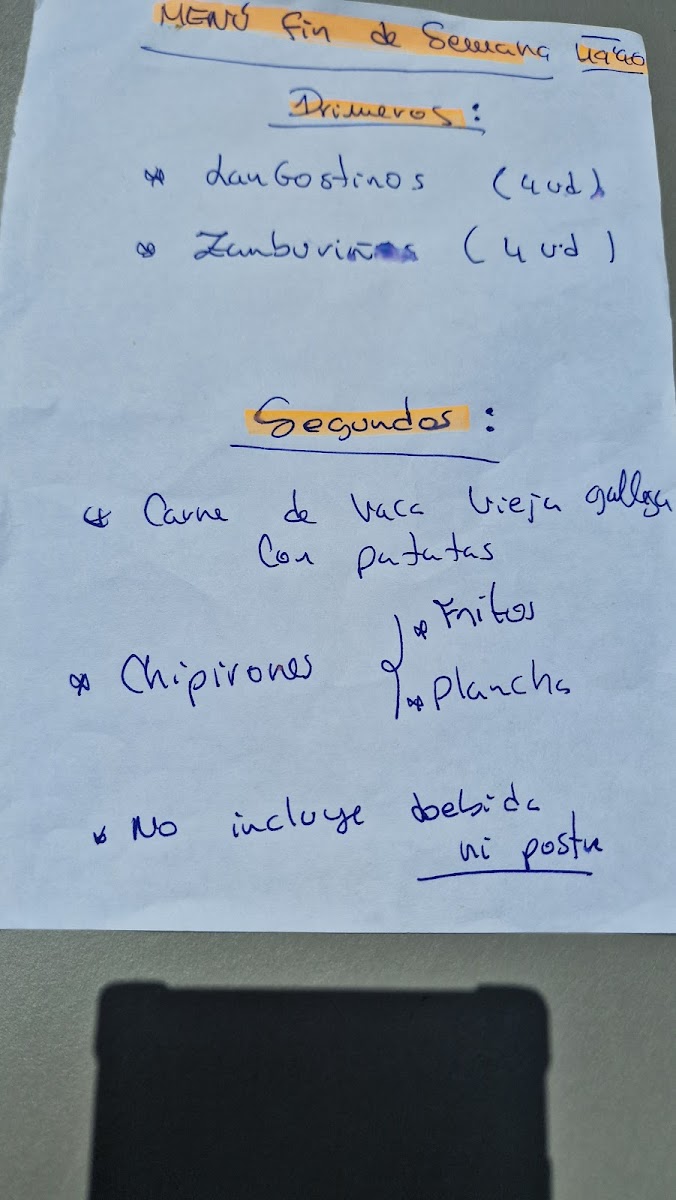 MENÚ fin de Semana 49'90
Primeros:
* LanGostinos (4 ud)
* Zamburiñas (4 ud)
Segundos:
* Carne de Vaca Vieja gallega
Con patatas
* Fritos
* Chipirones
* Plancha
* No incluye bebida
ni postre